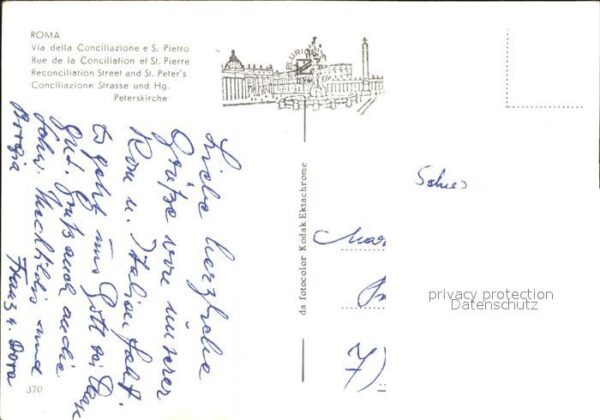 ROMA
Via della Conciliazione e S. Pietro
Rue de la Conciliation et St. Pierre
Reconciliation Street and St. Peter's
Conciliazione Strasse und Hg.
Peterskirche
EUR
Liebe herzliche
Grüße von unserer
Rom u. Italienfahrt.
Es geht uns Gott sei Dank
gut. Gruß auch an die
Schw. Mechtildis und
Franz u. Dora
da fotocolor Kodak Ektachrome
Schwes
Mar
7)
privacy protection
Datenschutz
370